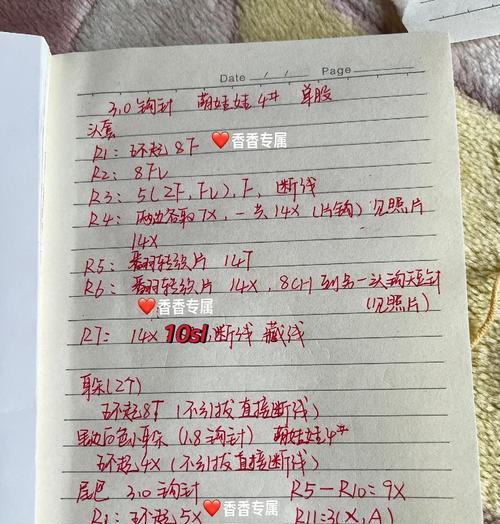 Date / / Page
3.0钩针 萌娃娃4# 单股
头套
R1: 环起8F ❤️香香专属
R2: 8FV
R3: 5(2F,FV),F,断线
R4: 两边各取7X,一共14X(片钩)见照片
14X
R5: 翻转织片 14T
R6: 翻转织片 14X,8CH到另一头钩短针
❤️香香专属 (见照片)
R7: 14X 10sl,断线 藏线
耳朵(2个)
环起8T(不引拔直接断线)
黑边白色小耳朵(1.8钩针) 萌娃娃4#
环起4X(不引拔直接断线)
尾巴 3.0钩针 R5-R10=9X
R1: 环起5X ❤️香香专属 R11=3(X,A)